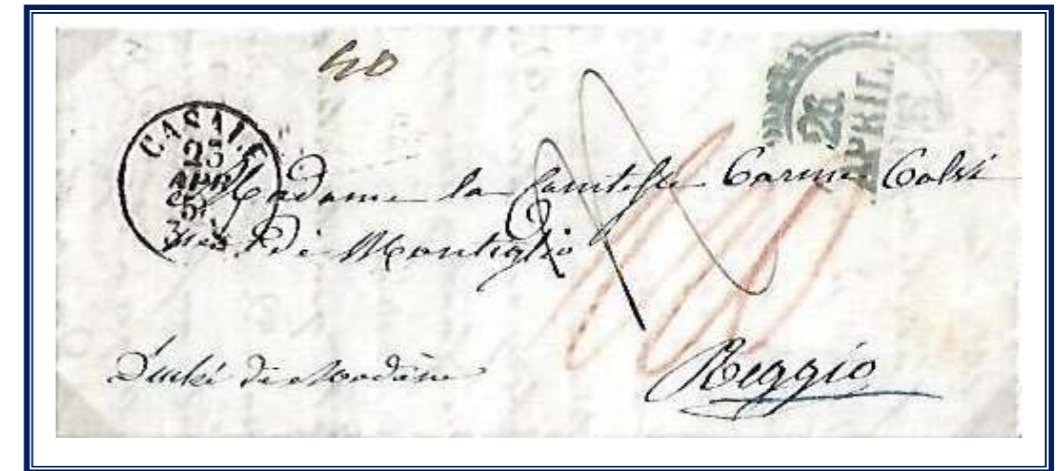 40
CASALE
25
APR
26
APRIL
Madame la Comtesse Carine Calvi
née di Montiglio
Duché de Modène
Reggio